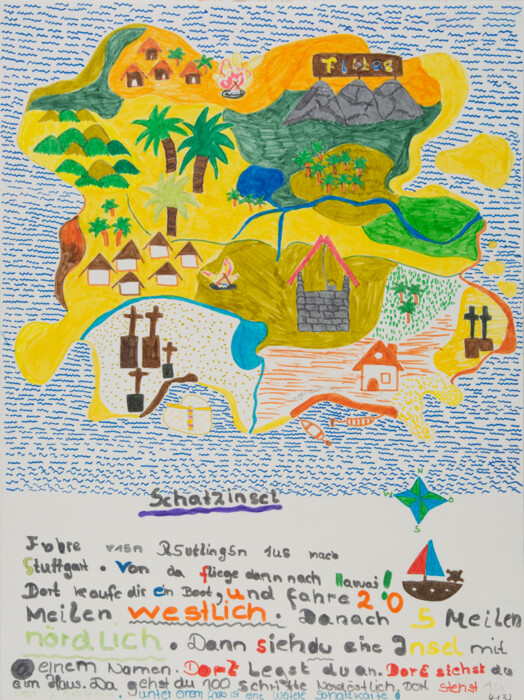 Schatzinsel
N
W O
S
Fahre von Reutlingen aus nach
Stuttgart. Von da fliege dann nach Hawai!
Dort kaufe dir ein Boot, und fahre 20
Meilen westlich. Danach 5 Meilen
nördlich. Dann siehdu eine Insel mit
einem Namen. Dort legst du an. Dort siehst du
ein Haus. Da gehst du 100 schritte Nordöstlich, Dort siehst
unter einem ist eine Weitere Schatzkarte